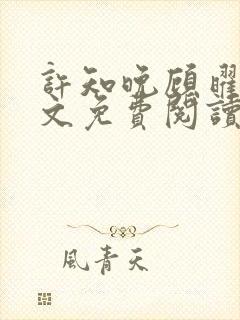 許知晚顧曜
文免費閱讀
風青天